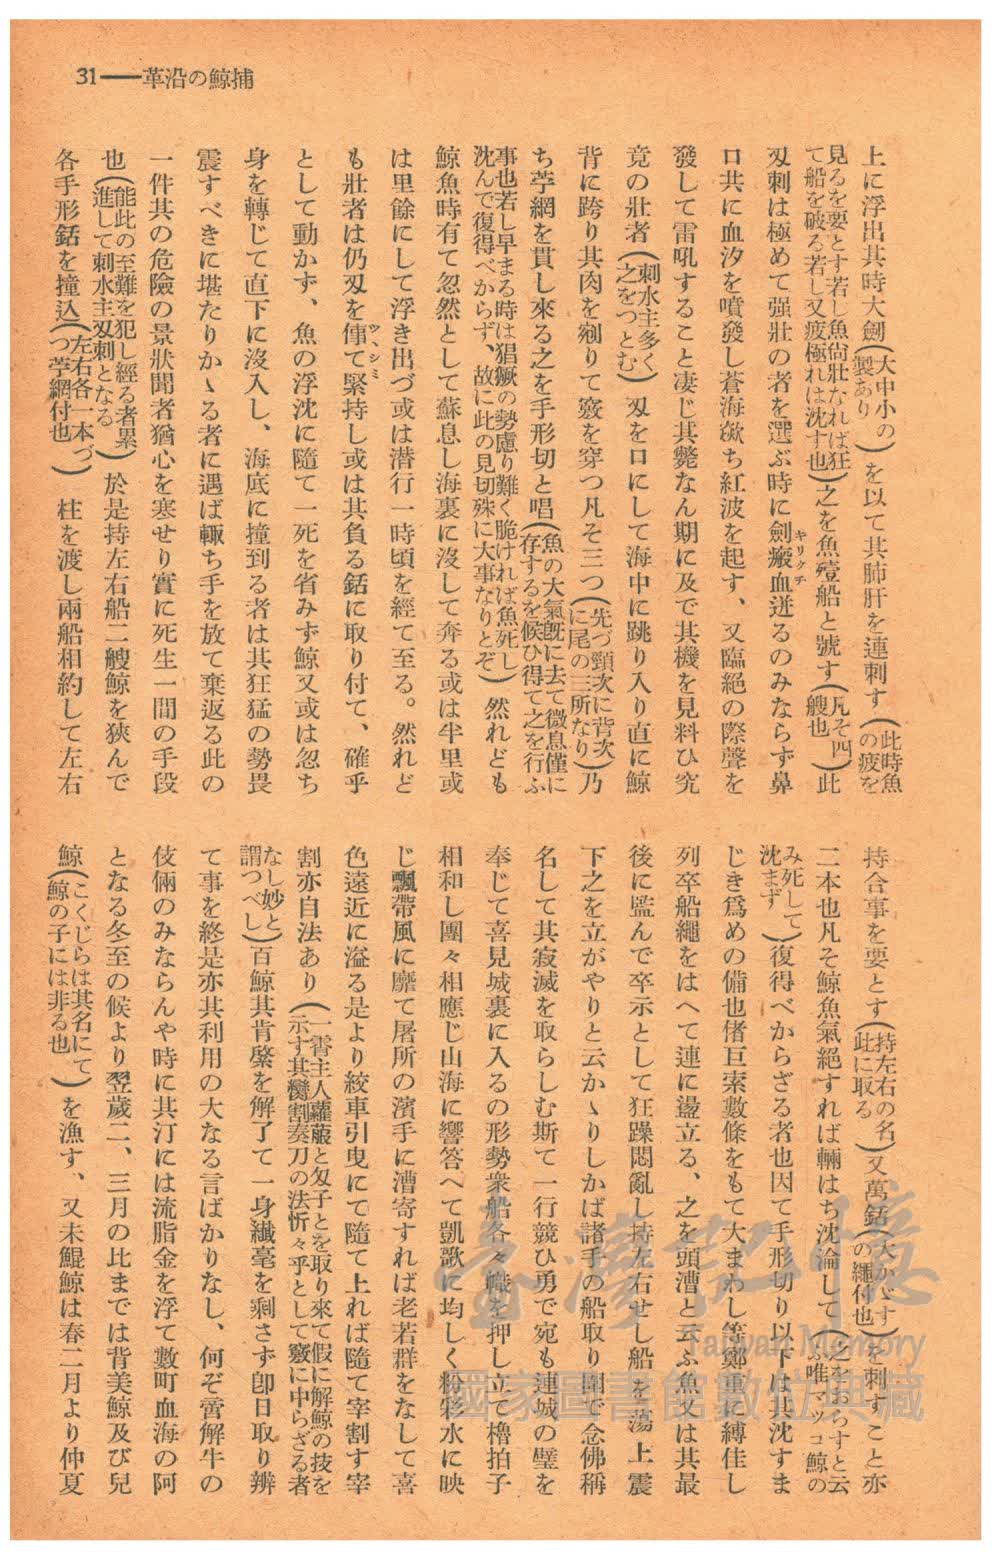 31――革沿の鯨捕
上に浮出其時大劍(大中小の製あり)を以て其肺肝を連刺す(此時魚の疲を
見るを要とす若し魚尙壯なれば狂て船を破る若し又疲極れは沈す也)之を魚殪船と號す(凡そ四艘也)此
刄刺は極めて强壯の者を選ぶ時に劍瘢キリクチ血迸るのみならず鼻
口共に血汐を噴發し蒼海歘ち紅波を起す、又臨絕の際聲を
發して雷吼すること凄じ其斃なん期に及で其機を見料ひ究
竟の壯者(刺水主多く之をつとむ)刄を口にして海中に跳り入り直に鯨
背に跨り其肉を剜りて竅を穿つ凡そ三つ(先づ頸次に背次に尾の三所なり)乃
ち苧網を貫し來る之を手形切と唱(魚の大氣旣に去て微息僅に存するを候ひ得て之を行ふ
事也若し早まる時は猖獗の勢慮り難く脆ければ魚死し沈んで復得べからず、故に此の見切殊に大事なりとぞ)然れども
鯨魚時有て忽然として蘇息し海裏に沒して奔る或は半里或
は里餘にして浮き出づ或は潜行一時頃を經て至る。然れど
も壯者は仍刄を倳ツヽシミて緊持し或は其負る銛に取り付て、確乎
として動かず、魚の浮沈に隨て一死を省みず鯨又或は忽ち
身を轉じて直下に沒入し、海底に撞到る者は其狂猛の勢畏
震すべきに堪たりかゝる者に遇ば輙ち手を放て棄返る此の
一件其の危險の景狀聞者猶心を寒せり實に死生一間の手段
也(能此の至難を犯し經る者累進して刺水主刄刺となる)於是持左右船二艘鯨を狹んで
各手形銛を撞込(左右各一本づつ苧網付也)柱を渡し兩船相約して左右
持合事を要とす(持左右の名此に取る)又萬銛(大かゞすの繩付也)を刺すこと亦
二本也凡そ鯨魚氣絕すれば輛はち沈淪して(之をおらすと云ふ唯マッコ鯨の
み死して沈まず)復得べからざる者也因て手形切り以下は其沈すま
じき爲めの備也偖巨索數條をもて大まわし等鄭重に縛佳し
列卒船繩をはへて連に盪立る、之を頭漕と云ふ魚又は其最
後に臨んで卒示として狂躁悶亂し持左右せし船を蕩上震
下之を立がやりと云かゝりしかば諸手の船取り圍で念佛稱
名して其寂滅を取らしむ斯て一行競ひ勇で宛も連城の璧を
奉じて喜見城裏に入るの形勢衆船各々幟を押し立て櫓拍子
相和し團々相應じ山海に響答へて凱歌に均しく粉彩水に映
じ飄帶風に靡て屠所の濱手に漕寄すれば老若群をなして喜
色遠近に溢る是より絞車引曳にて隨て上れば隨て宰割す宰
割亦自法あり(一霄主人蘿蔔と匁子とを取り來て假に解鯨の技を示す其臠割奏刀の法忻々乎として竅に中らざる者
なし妙と謂つべし)百鯨其肯綮を解了て一身纎毫を剩さず卽日取り辨
て事を終是亦其利用の大なる言ばかりなし、何ぞ啻解牛の
伎倆のみならんや時に其汀には流脂金を浮て數町血海の阿
となる冬至の候より翌歲二、三月の比までは背美鯨及び兒
鯨(こくじらは其名にて鯨の子には非る也)を漁す、又未鯤鯨は春二月より仲夏
臺灣記憶
Taiwan Memory
國家圖書館數位典藏